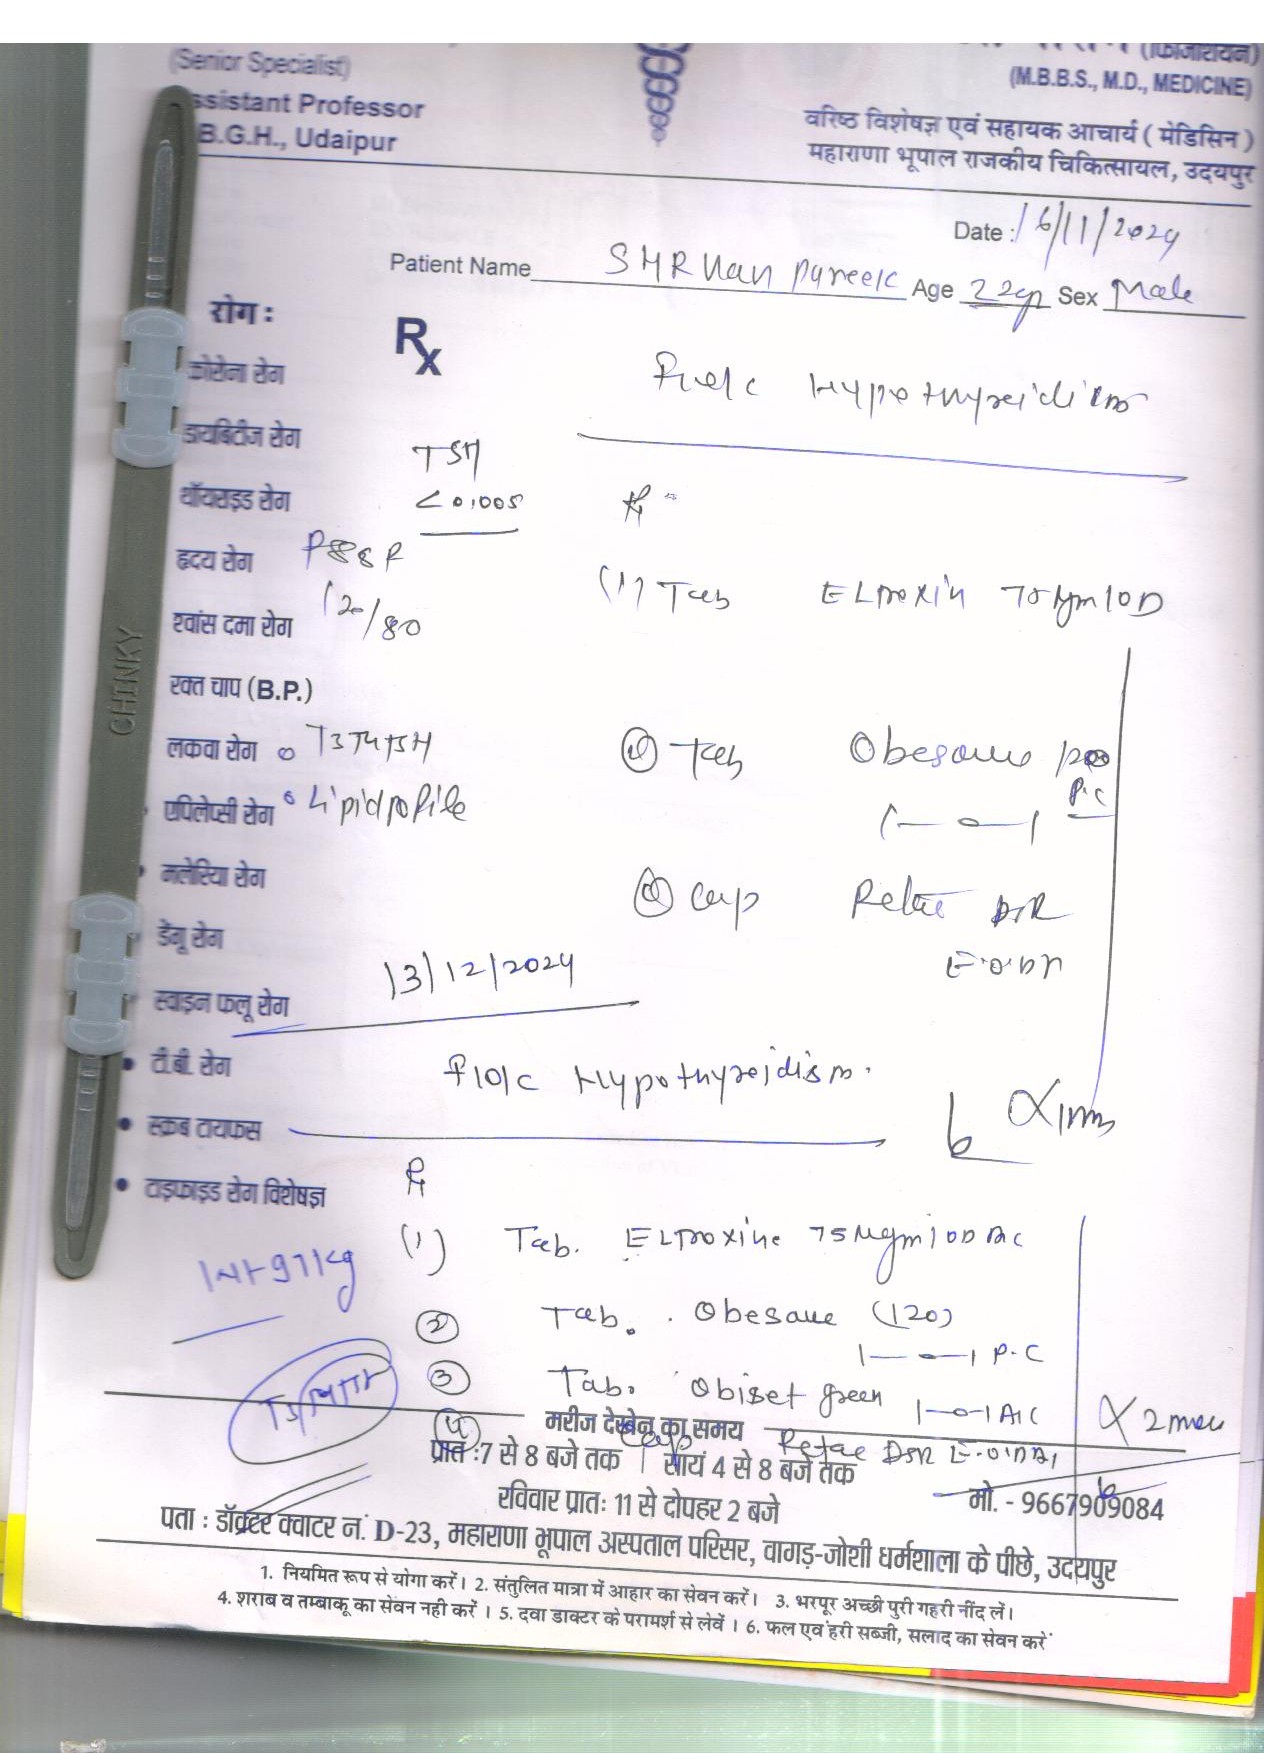 (फिजिशियन)
(Senior Specialist)
(M.B.B.S., M.D., MEDICINE)
ssistant Professor
वरिष्ठ विशेषज्ञ एवं सहायक आचार्य ( मेडिसिन )
B.G.H., Udaipur
महाराणा भूपाल राजकीय चिकित्सायल, उदयपुर
Date : 16/11/2024
Patient Name Pareek Age 22yr Sex Male
रोग :
Rx
कोरोना रोग
Hypothyroidism
डायबिटीज रोग
TSH
थॉयराइड रोग
<0.005
हृदय रोग
(1) Tab Eltroxin 75 Mgm 1 OD
श्वांस दमा रोग
120/80
रक्त चाप (B.P.)
लकवा रोग
T3T4TSH
② Tab Obesave
P.C
1—0—1
एपिलेप्सी रोग
Lipid profile
मलेरिया रोग
Cap DSR
डेंगू रोग
13/12/2024
स्वाइन फलू रोग
• टी.बी. रोग
Hypothyroidism.
• स्क्रब टायफस
• टाइफाइड रोग विशेषज्ञ
(1) Tab. Eltroxine 75 Mgm 1 OD AC
Wt 97 kg
② Tab. Obesave (120)
1—0—1 P.C
③ Tab. Obiset green 1—0—1 AC
x 2
④ Cap DSR
मरीज देखेने का समय
प्रात :7 से 8 बजे तक | सायं 4 से 8 बजे तक
रविवार प्रातः 11 से दोपहर 2 बजे
मो. - 9667909084
पता : डॉक्टर क्वाटर नं. D-23, महाराणा भूपाल अस्पताल परिसर, वागड़-जोशी धर्मशाला के पीछे, उदयपुर
1. नियमित रूप से योगा करें। 2. संतुलित मात्रा में आहार का सेवन करें। 3. भरपूर अच्छी पुरी गहरी नींद लें।
4. शराब व तम्बाकू का सेवन नही करें । 5. दवा डाक्टर के परामर्श से लेवें । 6. फल एवं हरी सब्जी, सलाद का सेवन करें
CHINKY